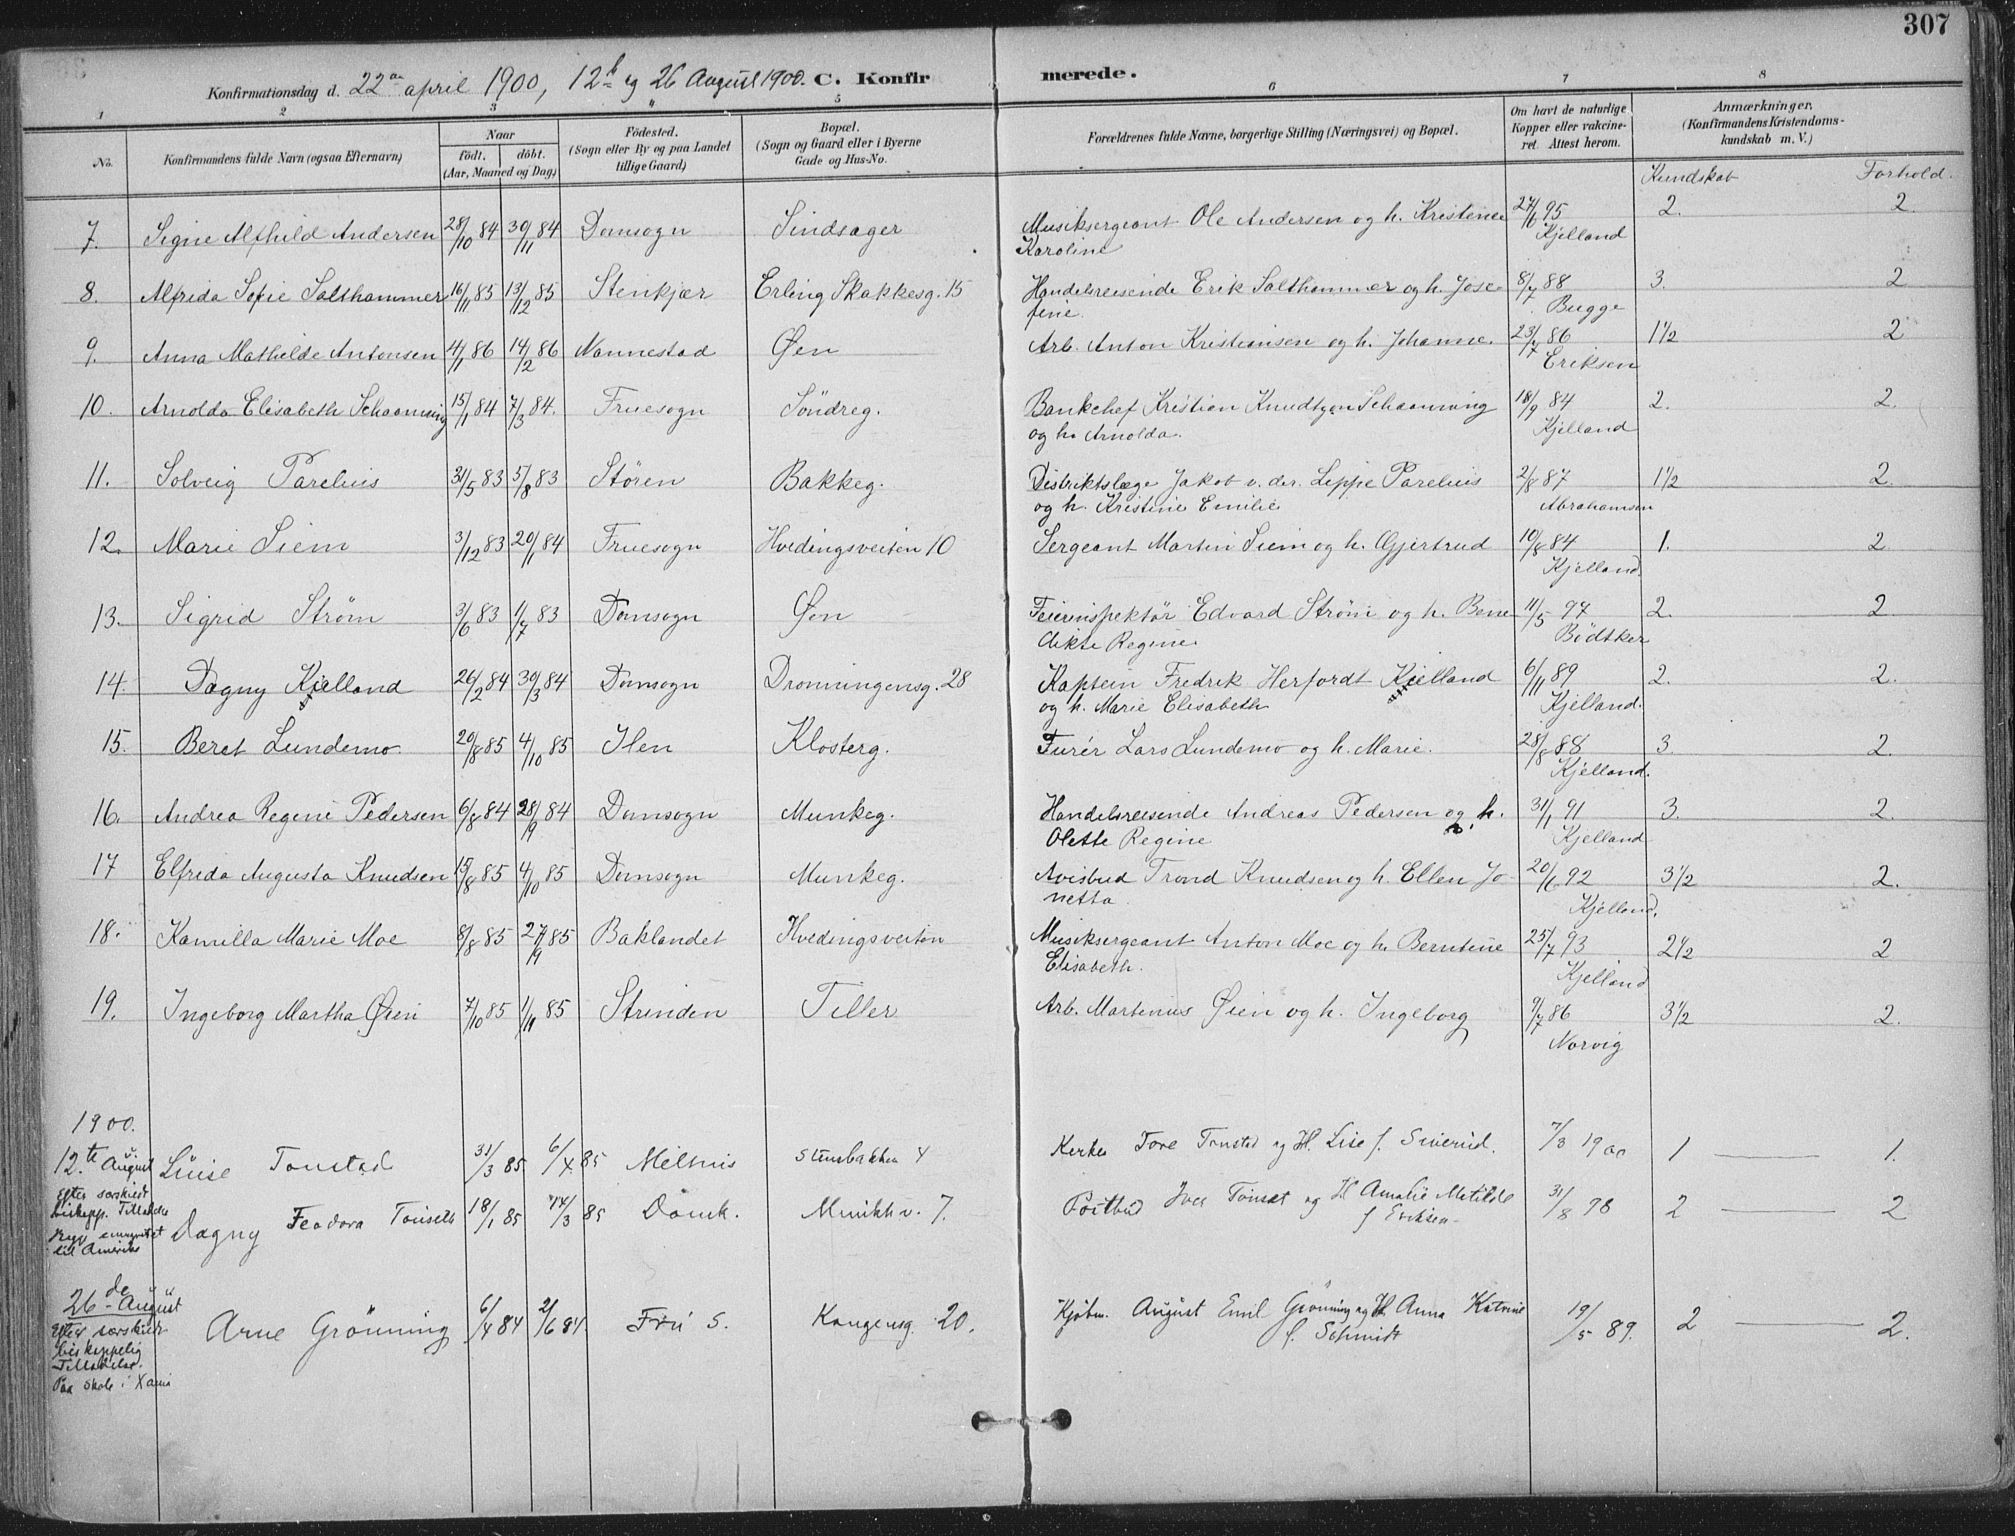 307
Konfirmationsdag d. 22de april 1900, 12te og 26 August 1900. C. Konfirmerede.
1 2 3 4 5 6 7 8
No. Konfirmandens fulde Navn (ogsaa Efternavn) Naar födt. döbt. (Aar, Maaned og Dag) Födested. (Sogn eller By og paa Landet tillige Gaard) Bopæl. (Sogn og Gaard eller i Byerne Gade og Hus-No. Forældrenes fulde Navne, borgerlige Stilling (Næringsvei) og Bopæl. Om havt de naturlige Kopper eller vakcineret. Attest herom. Anmærkninger. (Konfirmandens Kristendomskundskab m. V.)
Kundskab Forhold.
7. Signe Alfhild Andersen 28/10 84 30/11 84 Domsogn Sindsager Musiksergeant Ole Andersen og h. Kristence 27/6 95 2. 2.
Karoline Kjelland
8. Alfrida Sofie Salthammer 16/11 85 13/12 85 Stenkjær Erling Skakkesg. 15 Handelsreisende Erik Salthammer og h. Jose- 8/7 88 3. 2
fine. Bugge
9. Anna Mathilde Antonsen 4/1 86 14/2 86 Nannestad Øen Arb. Anton Kristiansen og h. Johanne. 23/7 86 1½ 2
Eriksen
10. Arnolda Elisabeth Schaanning 15/1 84 7/3 84. Fruesogn Söndreg. Bankchef Kristian Knudtzon Schaanning 18/9 84 2. 2.
og h. Arnolda. Kjelland
11. Solveig Parelius 31/5 83 5/8 83 Støren Bakkeg. Distriktslæge Jakob v. der. Lippe Parelius 2/8 87 1½ 2.
og h. Kristine Emilie Abrahamsen
12. Marie Siem 3/12 83 20/1 84 Fruesogn Hvedingsveiten 10 Sergeant Martin Siem og h. Gjertrud 10/8 84 1. 2.
Kjelland.
13. Sigrid Strøm 3/6 83 1/7 83 Domsogn Øen Feierinspektør Edvard Strøm og h. Bene 11/5 97 2. 2.
dikte Regine Bödtker
14. Dagny Kielland 26/2 84 30/3 84 Domsogn Dronningensg. 28 Kaptein Fredrik Herfordt Kielland 6/11 89 2. 2.
og h. Marie Elisabeth Kjelland.
15. Beret Lundemo 20/8 85 4/10 85 Ilen Klosterg. Furér Lars Lundemo og h. Marie. 28/8 88 3. 2.
Kjelland.
16. Andrea Regine Pedersen 6/8 84 28/9 84 Domsogn Munkeg. Handelsreisende Andreas Pedersen og h. 31/1 91 3. 2.
Olette Regine Kjelland
17 Elfrida Augusta Knudsen 15/8 85 4/10 85 Domsogn Munkeg. Avisbud Trond Knudsen og h. Ellen Jo- 20/6 92 3½ 2.
netta. Kjelland.
18. Kamilla Marie Moe 8/8 85 27/9 85 Baklandet Hvedingsveiten Musiksergeant Anton Moe og h. Berntine 25/7 93 2½ 2
Elisabeth. Kjelland
19. Ingeborg Martha Øien 7/10 85 1/11 85 Strinden Tiller Arb. Martinius Øien og h. Ingeborg 9/7 86 3½ 2.
Norvig
1900.
12.te August Luise Tonstad 31/3 85 6/4 85 Melhus Stensbakken 4 Tore Tonstad og H. Lise f. Siverud. 7/3 1900 1 — 1.
Efter særskildt
biskopp. Tilladelse Dagny Feodora Tönseth 18/1 85 14/3 85 Domk. Munkhv. 7. Postbud Iver Tönset og H Amalie Matilde 31/8 98 2 — 2
f Eriksen
til Amerika
26de August Arne Grönning 6/4 84 2/6 84 Frü S. Kongensg. 20. Kjøbm. August Emil Grönning og H Anna Katrine 19/5 89. 2 — 2.
f. Schmidt
Efter særskildt
biskoppelig
Tilladelse.
Paa Skole i Xania